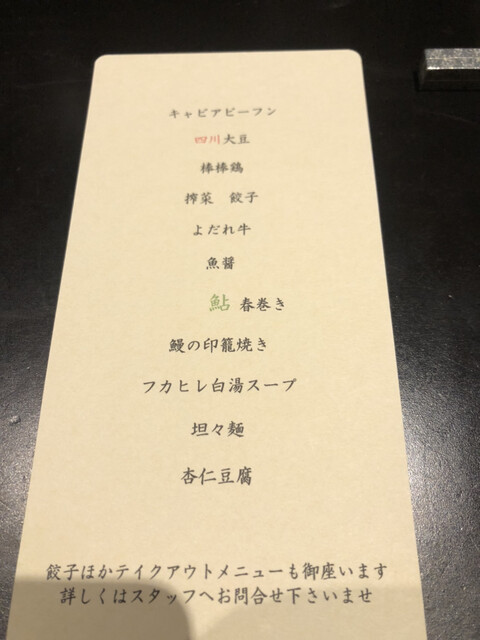 キャビアビーフン
四川大豆
棒棒鶏
搾菜　餃子
よだれ牛
魚醤
鮎 春巻き
鰻の印籠焼き
フカヒレ白湯スープ
坦々麺
杏仁豆腐
餃子ほかテイクアウトメニューも御座います
詳しくはスタッフへお問合せ下さいませ